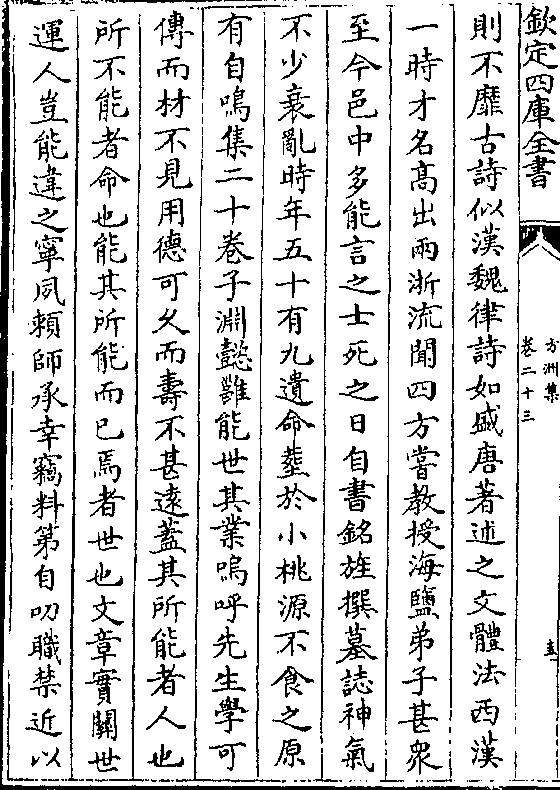 欽定四庫全書
方洲集
卷二十三
則不靡古詩似漢魏律詩如盛唐著述之文體法西漢
一時才名髙出兩浙流聞四方嘗教授海鹽弟子甚衆
至今邑中多能言之士死之日自書銘旌撰墓誌神氣
不少衰亂時年五十有九遺命塟於小桃源不食之原
有自鳴集二十卷子淵懿雖能世其業嗚呼先生學可
傳而材不見用德可久而壽不甚逺蓋其所能者人也
所不能者命也能其所能而已焉者世也文章實關世
運人豈能違之寧夙頼師承幸竊科第自叨職禁近以